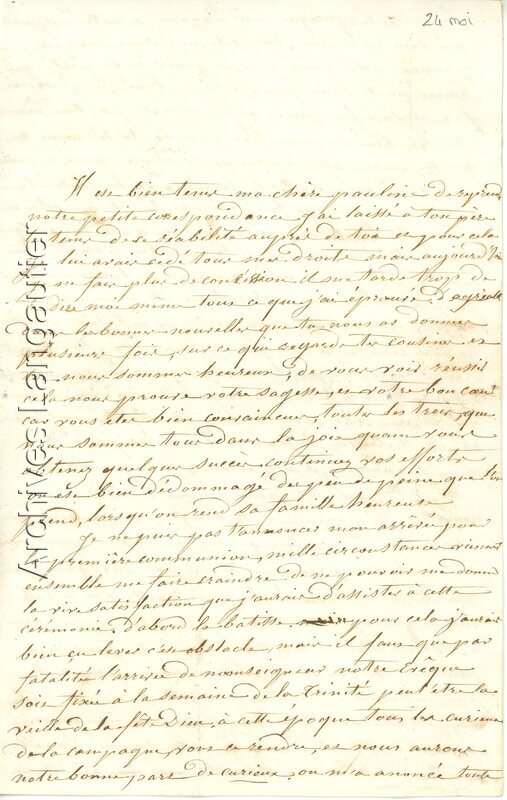 24 mai
Il est bien tems ma chère pauline de reprendre
notre petite correspondance j'ai laissé à ton père
tems de se réabilité auprès de toi et pour cela
lui avais cédé tous mes droits mais aujourd'hui
ne fais plus de il me tarde trop de
dire moi même tous ce que j'ai éprouvé d'agréable
les bonnes nouvelles que tu nous as donner
plusieurs fois, sur ce qui regarde tes cousines et
nous sommes heureux, de vous voir réussir
cela nous prouve votre sagesse, et votre bon cœur
car vous etes bien convaincues, toutes les trois, que
nous sommes tous dans la joie quand vous
obtenez quelques succès, continuez vos efforts
on est bien dédommagé du peu de peine que l'on
prend, lorsqu'on rend sa famille heureuse
Je ne puis pas t'annoncer mon arrivée pour
la première communion, mille circonstances viennent
ensemble me faire craindre de ne pouvoir me donner
la vive satisfaction que j'aurais d'assister à cette
cérémonie. d'abord la batisse pour cela j'aurais
bien çu lever cest obstacle, mais il faut que par
fatalité l'arrivée de monseigneur notre Evêque
soit fixée à la semaine de la Trinité peut être la
veille de la fête Dieu, à cette époque tous les curieux
de la campagne, vont ce rendre, et nous aurons
notre bonne part de curieux, on m'a anoncé toute
Archives Lasgaulier